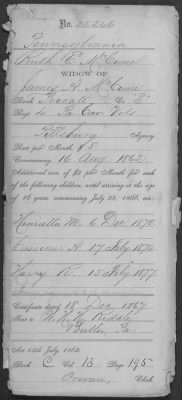 No. 25266
Pennsylvania
Ruth E. McCune
WIDOW OF
James A. McCune
Rank Private Co "E"
Regt 4 Pa Cav. Vols.
Pittsburg Agency
Rate per Month, $8
Commencing 16 Aug 1862.
Additional sum of $2 per Month for each
of the following children, until arriving at the age
of 16 years, commencing July 25, 1866, viz:
Henrietta M. 6 Dec. 1870.
A. 17 July 1874.
Harry R. 15 July 1877.
Certificate dated 18 Dec. 1867
Sent to Riddle
Butler Pa.
Act 14th July 1862.
Book C Vol. 13 Page 195
Clerk